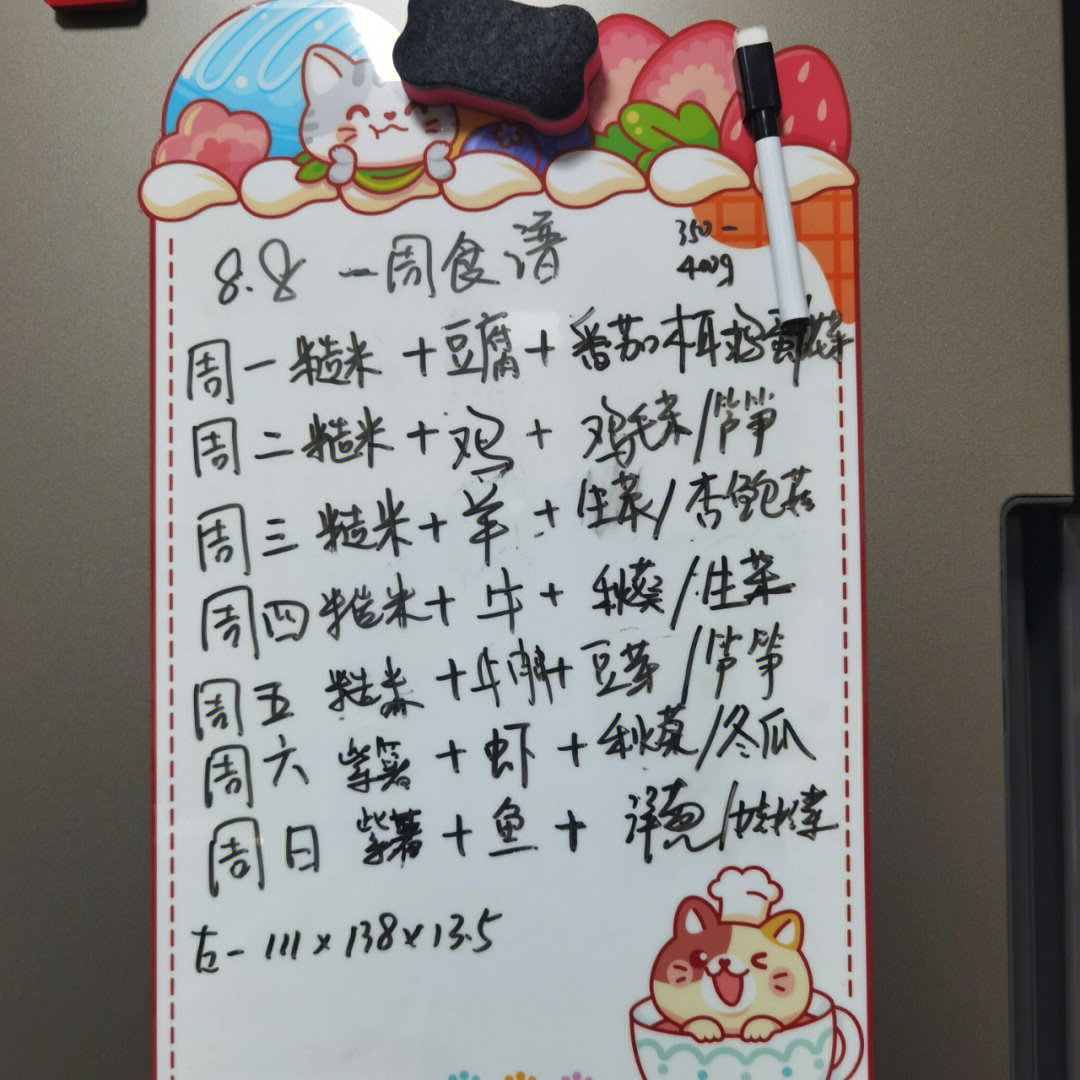 8.8 一周食谱
350-
400g
周一 糙米 + 豆腐 + 番茄木耳鸡蛋
周二 糙米 + 鸡 + 鸡毛菜/芦笋
周三 糙米 + 羊 + 生菜/杏鲍菇
周四 糙米 + 牛 + 秋葵/生菜
周五 糙米 + 牛腩 + 豆芽/芦笋
周六 紫薯 + 虾 + 秋葵/冬瓜
周日 紫薯 + 鱼 + 洋葱/娃娃菜
左一 111×138×13.5